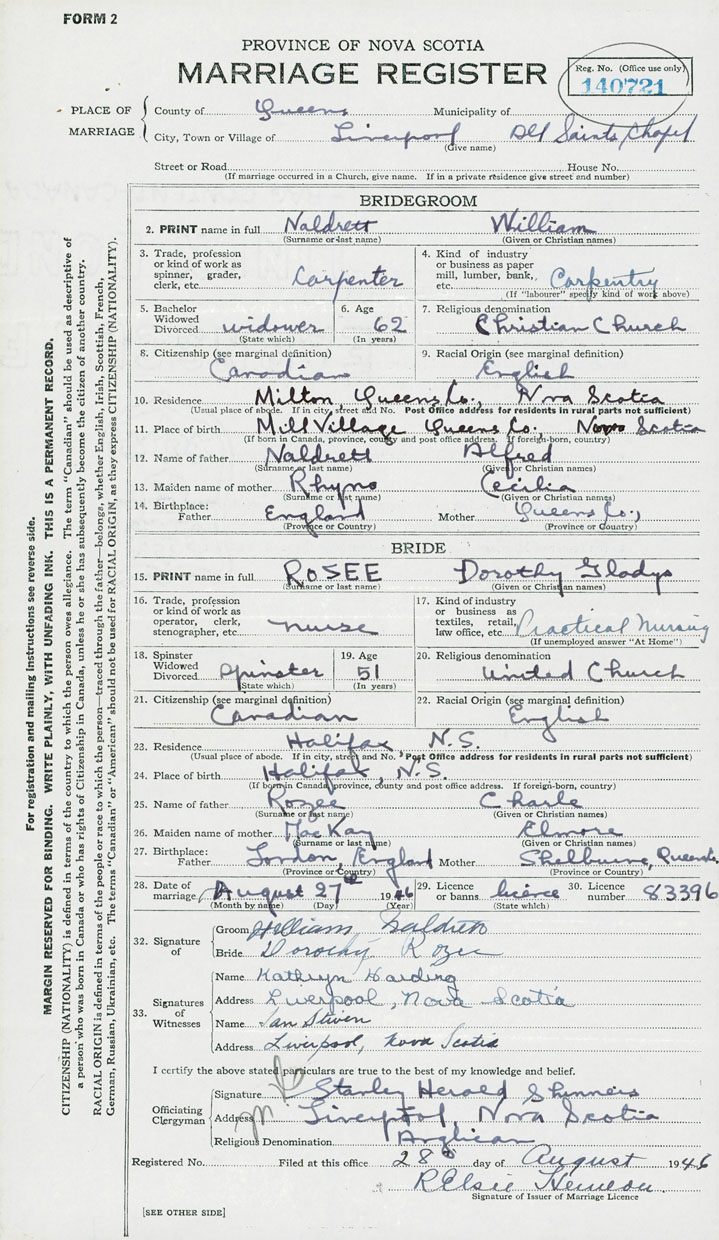 FORM 2
PROVINCE OF NOVA SCOTIA
MARRIAGE REGISTER
Reg. No. (Office use only)
140721
PLACE OF MARRIAGE
County of Queens Municipality of
City, Town or Village of Liverpool All Saints Chapel
(Give name)
Street or Road House No.
(If marriage occurred in a Church, give name. If in a private residence give street and number)
BRIDEGROOM
2. PRINT name in full Naldrett William
(Surname or last name) (Given or Christian names)
3. Trade, profession or kind of work as spinner, grader, clerk, etc. Carpenter
4. Kind of industry or business as paper mill, lumber, bank, etc. Carpentry
(If "labourer" specify kind of work above)
5. Bachelor Widowed Divorced widower
(State which)
6. Age 62
(In years)
7. Religious denomination
Christian Church
8. Citizenship (see marginal definition)
Canadian
9. Racial Origin (see marginal definition)
English
10. Residence Milton, Queens Co., Nova Scotia
(Usual place of abode. If in city, street and No. Post Office address for residents in rural parts not sufficient)
11. Place of birth Mill Village Queens Co., Nova Scotia
(If born in Canada, province, county and post office address. If foreign-born, country)
12. Name of father Naldrett Alfred
(Surname or last name) (Given or Christian names)
13. Maiden name of mother Rhyno Cecilia
(Surname or last name) (Given or Christian names)
14. Birthplace:
Father England Mother Queens Co.,
(Province or Country) (Province or Country)
BRIDE
15. PRINT name in full ROSEE Dorothy Gladys
(Surname or last name) (Given or Christian names)
16. Trade, profession or kind of work as operator, clerk, stenographer, etc. nurse
17. Kind of industry or business as textiles, retail, law office, etc. Practical Nursing
(If unemployed answer "At Home")
18. Spinster Widowed Divorced spinster
(State which)
19. Age 51
(In years)
20. Religious denomination
United Church
21. Citizenship (see marginal definition)
Canadian
22. Racial Origin (see marginal definition)
English
23. Residence Halifax, N.S.
(Usual place of abode. If in city, street and No. Post Office address for residents in rural parts not sufficient)
24. Place of birth Halifax, N.S.
(If born in Canada, province, county and post office address. If foreign-born, country)
25. Name of father Rozee Charle
(Surname or last name) (Given or Christian names)
26. Maiden name of mother MacKay Elmore
(Surname or last name) (Given or Christian names)
27. Birthplace:
Father London, England Mother Shelburne, Queens Co.
(Province or Country) (Province or Country)
28. Date of marriage August 27th 1946
(Month by name) (Day) (Year)
29. Licence or banns licence
(State which)
30. Licence number 83396
32. Signature of
Groom William Naldrett
Bride Dorothy Rozee
33. Signatures of Witnesses
Name Kathryn Harding
Address Liverpool, Nova Scotia
Name Ian Stiven
Address Liverpool, Nova Scotia
I certify the above stated particulars are true to the best of my knowledge and belief.
Officiating Clergyman
Signature Stanley Herald Shinners
Address Liverpool, Nova Scotia
Religious Denomination Anglican
Registered No. Filed at this office 28th day of August 1946
R Elsie
Signature of Issuer of Marriage Licence
[SEE OTHER SIDE]
For registration and mailing instructions see reverse side.
MARGIN RESERVED FOR BINDING. WRITE PLAINLY, WITH UNFADING INK. THIS IS A PERMANENT RECORD.
CITIZENSHIP (NATIONALITY) is defined in terms of the country to which the person owes allegiance. The term "Canadian" should be used as descriptive of
a person who was born in Canada or who has rights of Citizenship in Canada, unless he or she has subsequently become the citizen of another country.
RACIAL ORIGIN is defined in terms of the people or race to which the person—traced through the father—belongs, whether English, Irish, Scottish, French,
German, Russian, Ukrainian, etc. The terms "Canadian" or "American" should not be used for RACIAL ORIGIN, as they express CITIZENSHIP (NATIONALITY).